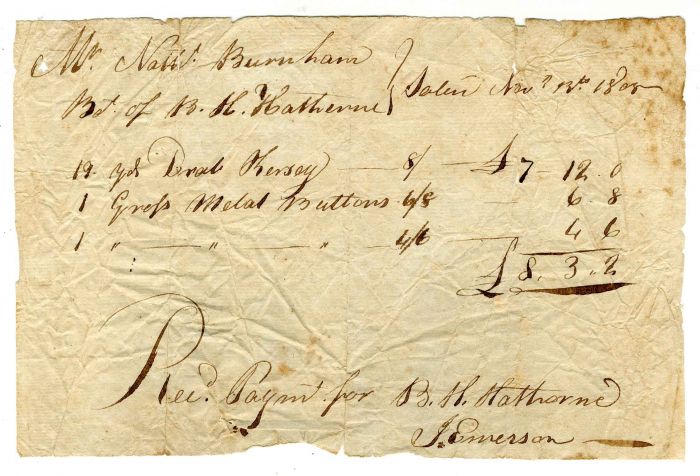 Mr. Nathl. Burnham
Bot. of B. H. Hathorne } Salem Novr
19 yds Drab Kersey — 8/ — £7 - 12 . 0
1 Gross Metal Buttons 6/8 6 . 8
1 " — " — " — 4/6 4 6
£8. 3 . 2
Recd. Paymt. for B. H. Hathorne
J. Emerson —